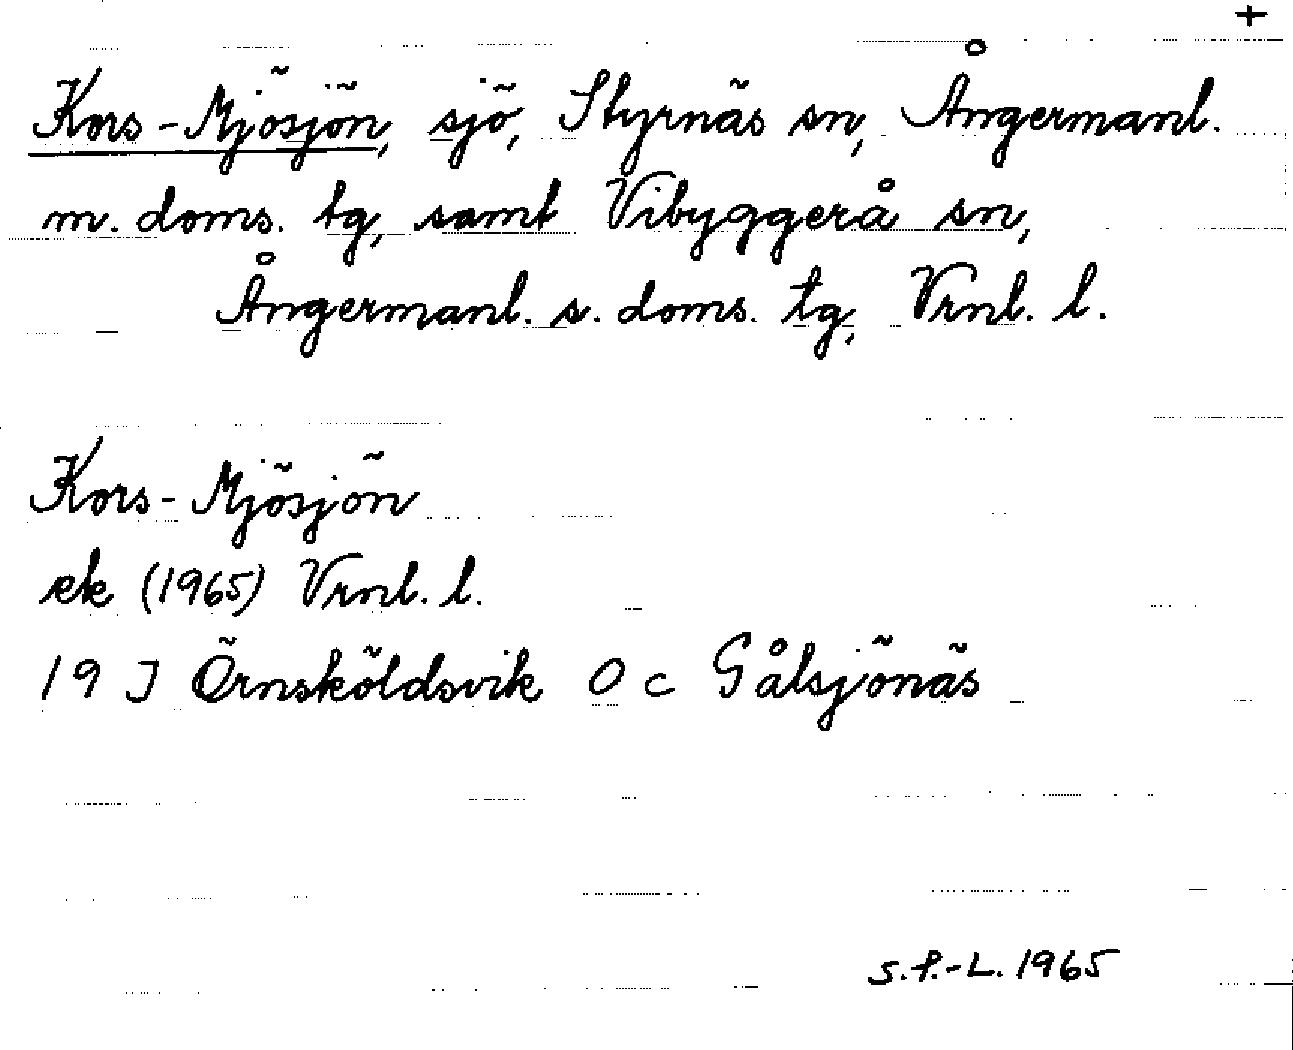 +
Kors-Mjösjön, sjö, Styrnäs sn, Ångermanl.
m. doms. tg, samt Vibyggerå sn,
Ångermanl. s. doms. tg, Vrnl. l.
Kors-Mjösjön
ek (1965) Vrnl. l.
19 J Örnsköldsvik 0 c Gålsjönäs
S.P.-L. 1965